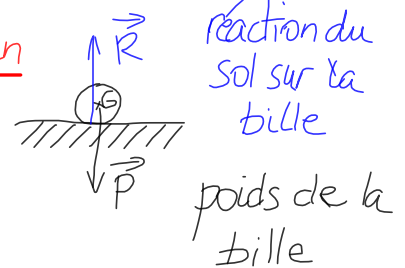 n
R
réaction du
sol sur la
bille
G
P
poids de la
bille